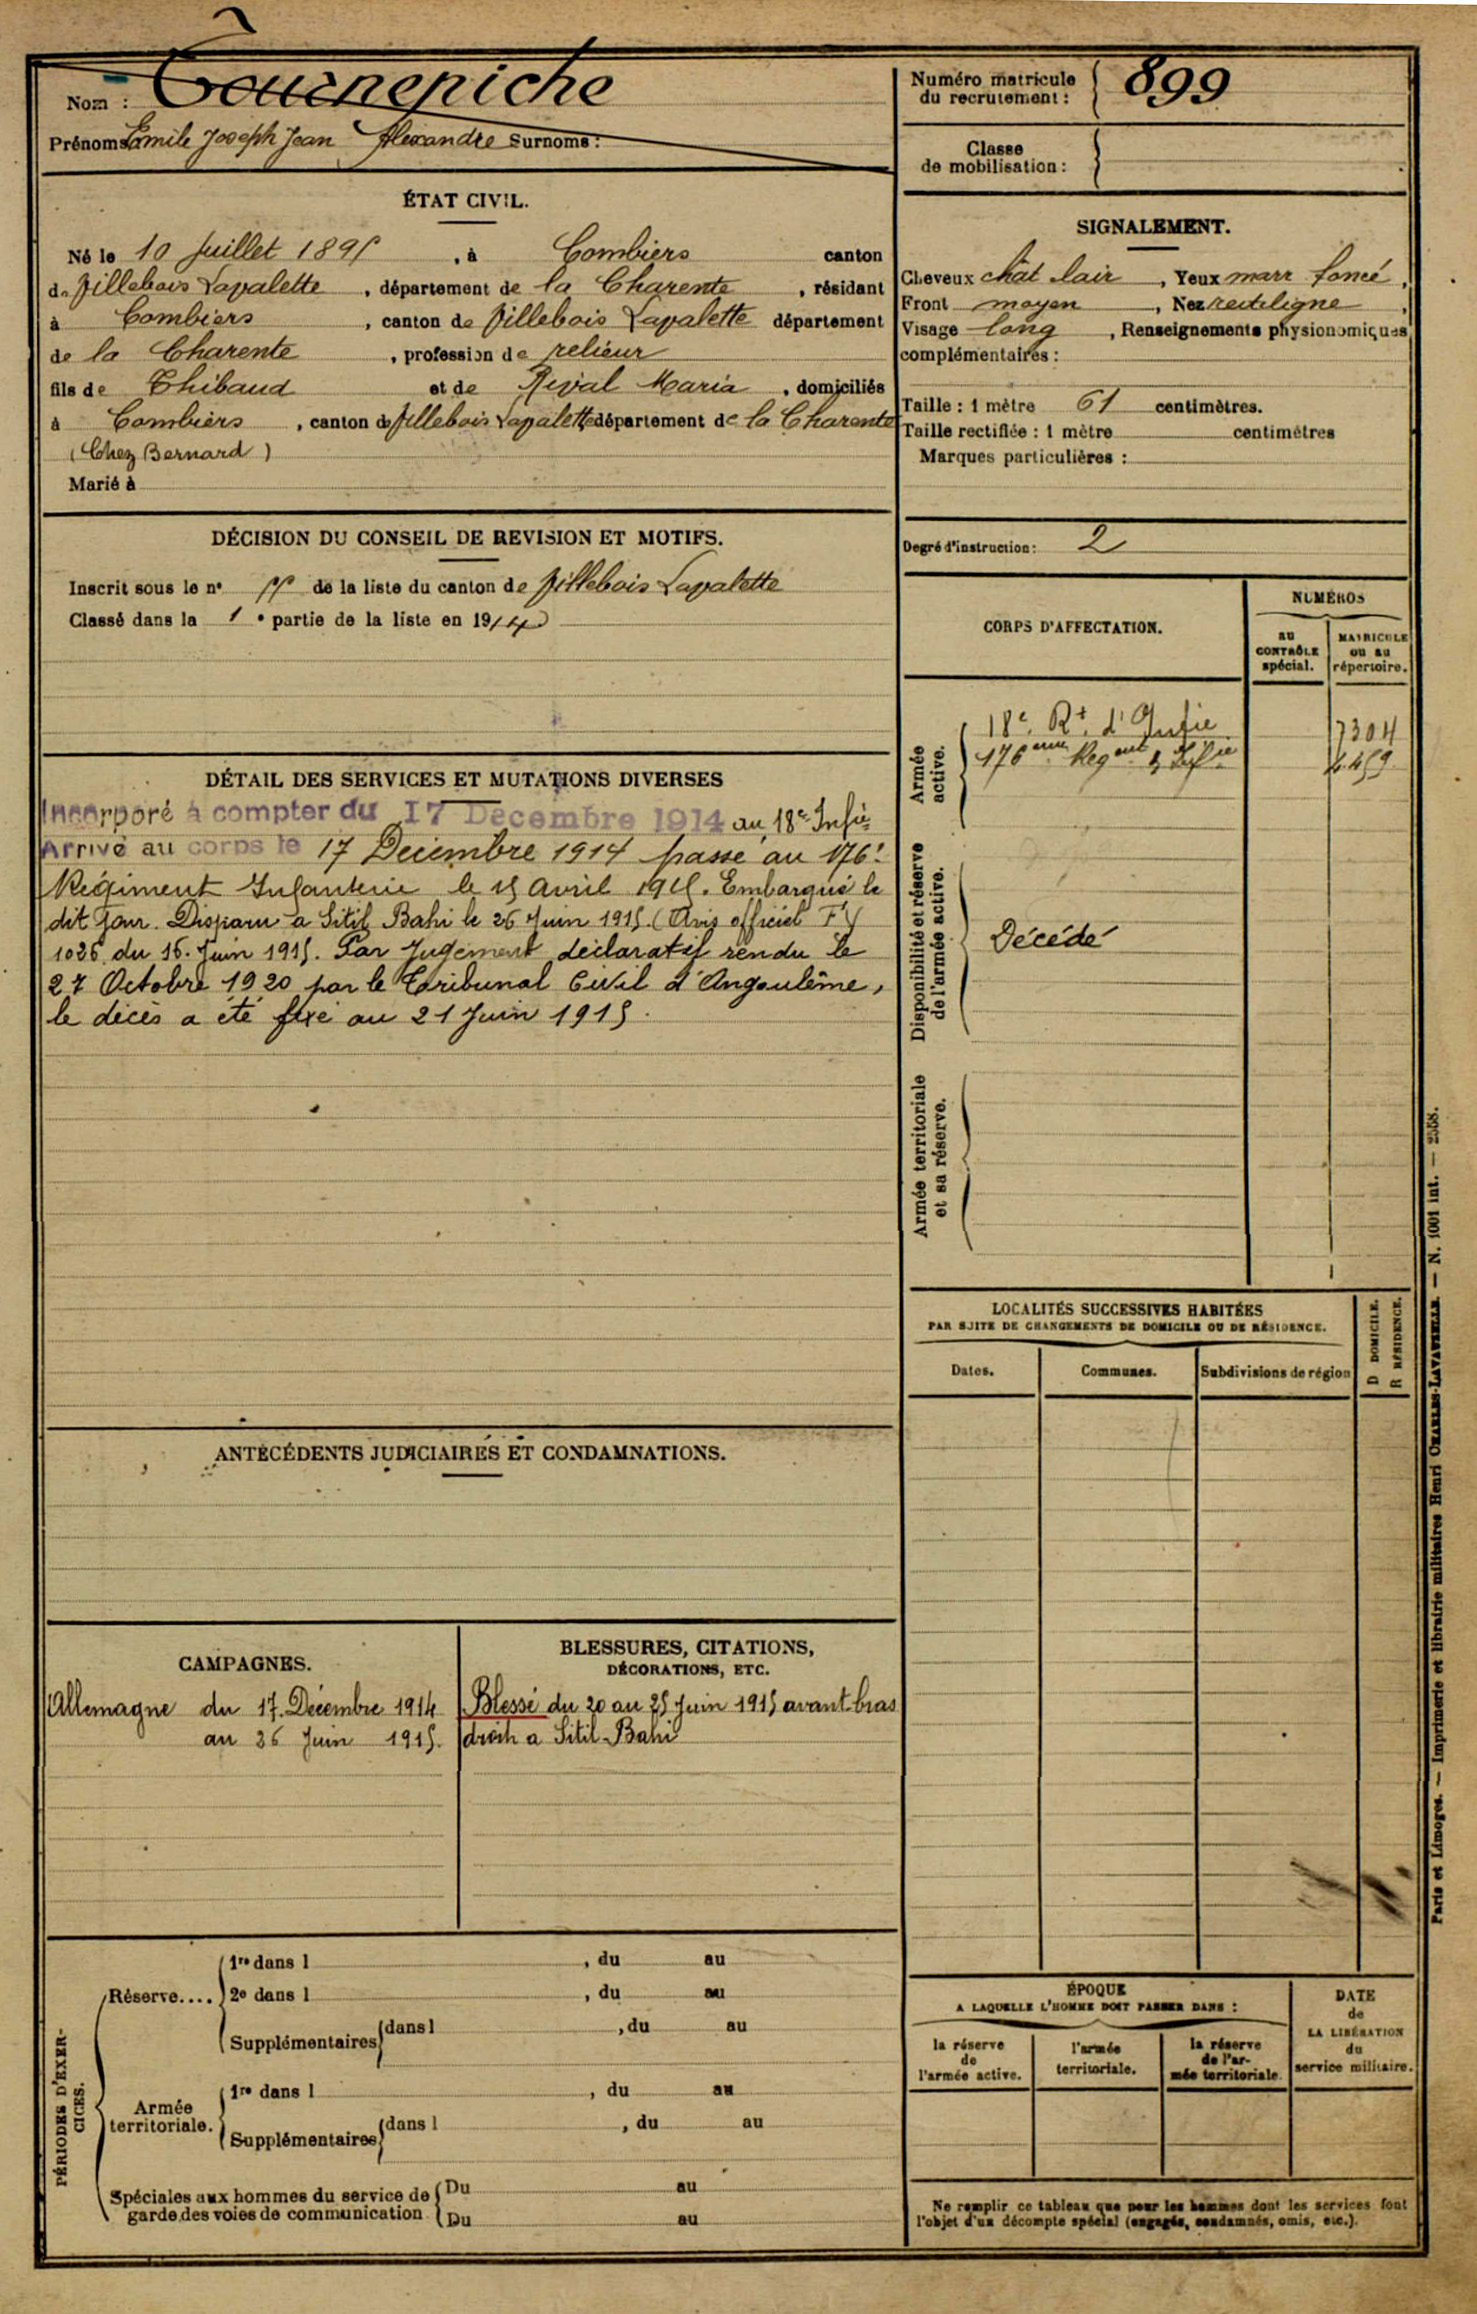 Nom : Tournepiche
Prénoms Emile Joseph Jean Alexandre Surnoms :
Numéro matricule
du recrutement : 899
Classe
de mobilisation :
ÉTAT CIVIL.
Né le 10 Juillet 1895, à Combiers canton
de Villebois Lavalette, département de la Charente, résidant
à Combiers, canton de Villebois Lavalette département
de la Charente, profession de relieur
fils de Thibaud et de Reival Maria, domiciliés
à Combiers, canton de Villebois Lavalette département de la Charente
(Chez Bernard)
Marié à
SIGNALEMENT.
Cheveux chât clair, Yeux marr foncé,
Front moyen, Nez rectiligne,
Visage long, Renseignements physionomiques
complémentaires :
Taille : 1 mètre 61 centimètres.
Taille rectifiée : 1 mètre centimètres
Marques particulières :
Degré d'instruction : 2
DÉCISION DU CONSEIL DE REVISION ET MOTIFS.
Inscrit sous le n° 55 de la liste du canton de Villebois Lavalette
Classé dans la 1e partie de la liste en 1914
CORPS D'AFFECTATION.
NUMÉROS
AU
CONTRÔLE
spécial.
MATRICULE
ou au
répertoire.
Armée
active.
18e Rt d'Infie 7304
176eme Regent d'Infie 4459
Disponibilité et réserve
de l'armée active.
Décédé
Armée territoriale
et sa réserve.
DÉTAIL DES SERVICES ET MUTATIONS DIVERSES
Incorporé à compter du 17 Décembre 1914 au 18e Infie
Arrivé au corps le 17 Décembre 1914 passé au 176e
Régiment Infanterie le 15 Avril 1915. Embarqué le
dit jour. Disparu a Sitil Bahi le 26 Juin 1915. (Avis officiel FY
1026 du 16. Juin 1915. Par Jugement déclaratif rendu le
27 Octobre 1920 par le Tribunal Civil d'Angoulême,
le décès a été fixé au 21 Juin 1915.
LOCALITÉS SUCCESSIVES HABITÉES
PAR SUITE DE CHANGEMENTS DE DOMICILE OU DE RÉSIDENCE.
Dates.
Communes.
Subdivisions de région
D DOMICILE.
R RÉSIDENCE.
ANTÉCÉDENTS JUDICIAIRES ET CONDAMNATIONS.
CAMPAGNES.
Allemagne du 17. Décembre 1914
au 26 Juin 1915.
BLESSURES, CITATIONS,
DÉCORATIONS, ETC.
Blessé du 20 au 25 Juin 1915 avant-bras
droit a Sitil-Bahi
PÉRIODES D'EXER-
CICES.
Réserve....
1re dans l , du au
2e dans l , du au
Supplémentaires dans l , du au
Armée
territoriale.
1re dans l , du au
Supplémentaires dans l , du au
Spéciales aux hommes du service de
garde des voies de communication
Du au
Du au
ÉPOQUE
A LAQUELLE L'HOMME DOIT PASSER DANS :
la réserve
de
l'armée active.
l'armée
territoriale.
la réserve
de l'ar-
mée territoriale
DATE
de
LA LIBÉRATION
du
service militaire.
Ne remplir ce tableau que pour les hommes dont les services font
l'objet d'un décompte spécial (engagés, condamnés, omis, etc.).
Paris et Limoges. — Imprimerie et librairie militaires Henri CHARLES-LAVAUZELLE. — N. 1001 int. — 2558.